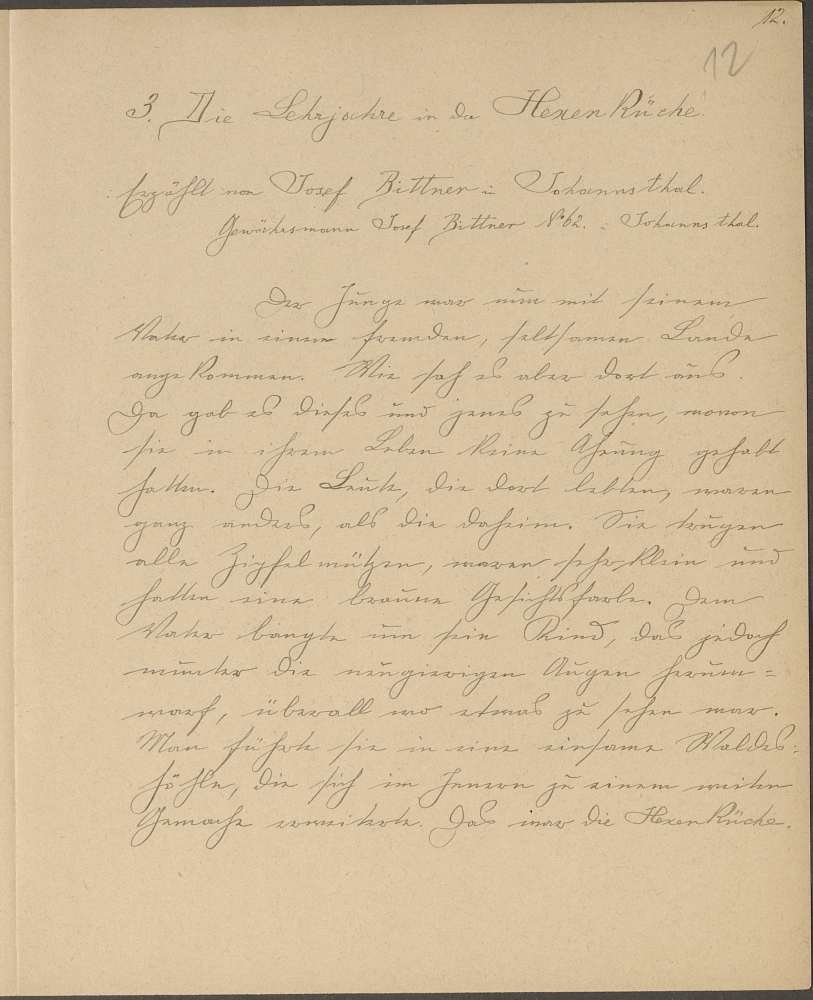 12.
12
3. Die Lehrjahre in da Hexenküche.
Erzählt von Josef Bittner in Johannsthal.
Gewährsmann Josef Bittner No 62. Johannsthal.
Der Junge war nun mit seinem
Vater in einem fremden, seltsamen Lande
angekommen. Wie sah es aber dort aus.
Da gab es dieses und jenes zu sehen, wovon
sie in ihrem Leben keine Ahnung gehabt
hatten. Die Leute, die dort lebten, waren
ganz anders, als die daheim. Sie trugen
alle Zipfelmützen, waren sehr klein und
hatten eine braune Gesichtsfarbe. Dem
Vater bangte um sein Kind, das jedoch
munter die neugierigen Augen herum=
warf, überall wo etwas zu sehen war.
Man führte sie in eine einsame Waldes=
höhle, die sich im Innern zu einem weiten
Gemache erweiterte. Das war die Hexenküche.